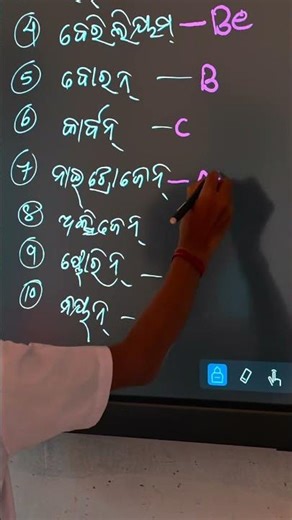 ④ ବେରିଲିୟମ୍ – Be
⑤ ବୋରନ୍ – B
⑥ କାର୍ବନ୍ – C
⑦ ନାଇଟ୍ରୋଜେନ୍ –
⑧ ଅକ୍ସିଜେନ୍
⑨ ଫ୍ଲୋରିନ୍ –
⑩ ନିୟନ୍ –